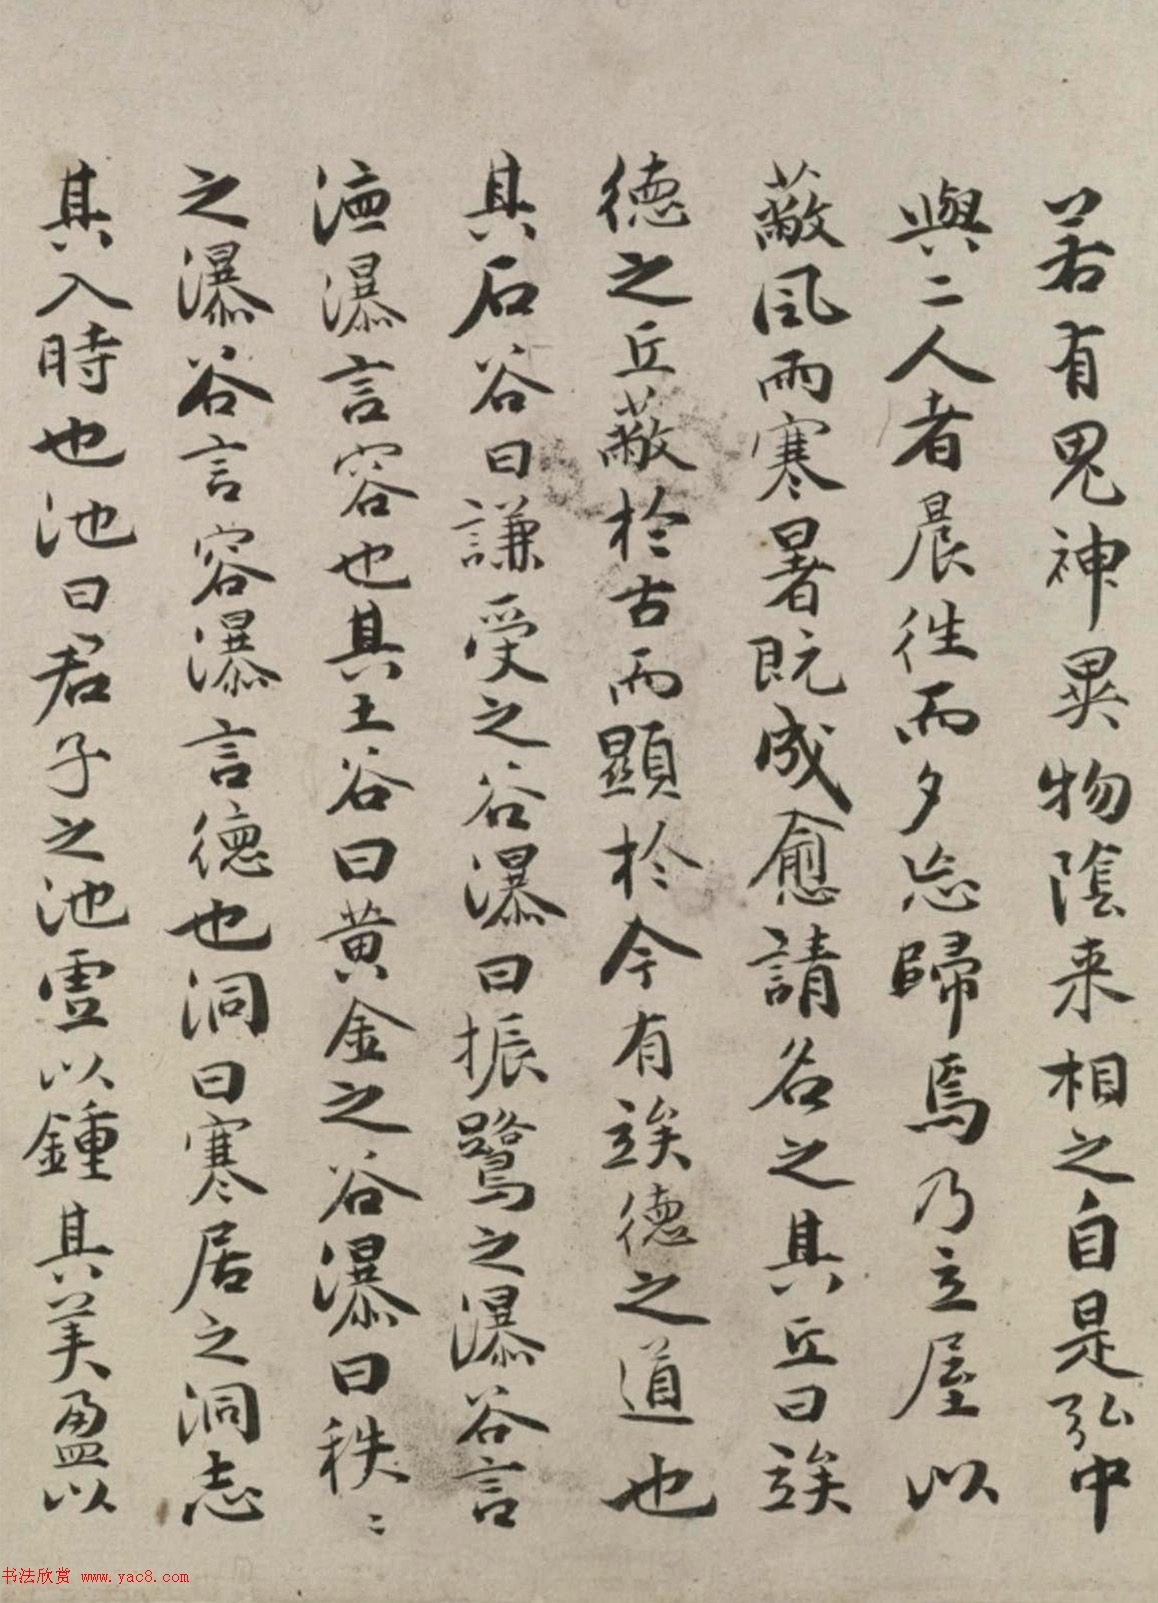 若有鬼神異物陰来相之自是弘中
與二人者晨往而夕忘歸焉乃立屋以
蔽風雨寒暑既成愈請名之其丘曰竢
德之丘蔽於古而顯於今有竢德之道也
其石谷曰謙受之谷瀑曰振鷺之瀑谷言
德瀑言容也其土谷曰黄金之谷瀑曰秩〻
之瀑谷言容瀑言德也洞曰寒居之洞志
其入時也池曰君子之池虛以鍾其美盈以
书法欣赏 www.yac8.com